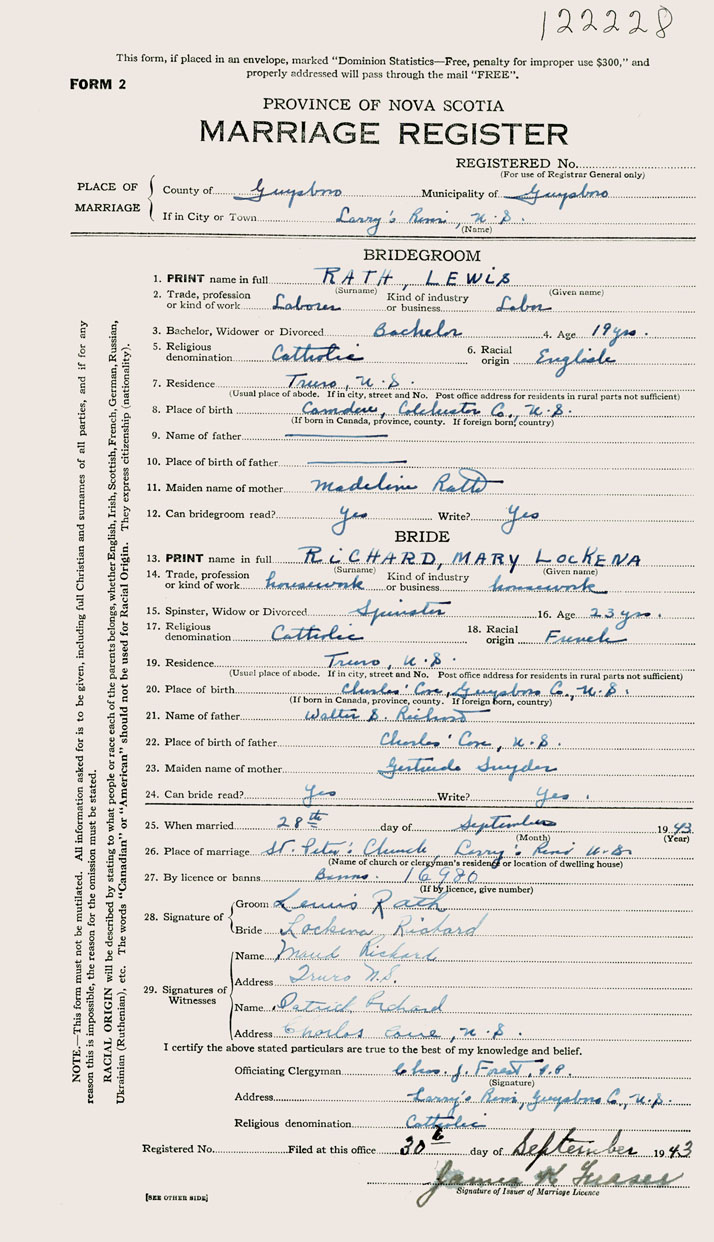 122228
This form, if placed in an envelope, marked "Dominion Statistics—Free, penalty for improper use $300," and
properly addressed will pass through the mail "FREE".
FORM 2
PROVINCE OF NOVA SCOTIA
MARRIAGE REGISTER
REGISTERED No.
(For use of Registrar General only)
PLACE OF MARRIAGE
County of Guysboro Municipality of Guysboro
If in City or Town Larry's River, N.S.
(Name)
BRIDEGROOM
1. PRINT name in full RATH, LEWIS
(Surname) (Given name)
2. Trade, profession or kind of work Laborer Kind of industry or business Labor
3. Bachelor, Widower or Divorced Bachelor 4. Age 19 yrs.
5. Religious denomination Catholic 6. Racial origin English
7. Residence Truro, N.S.
(Usual place of abode. If in city, street and No. Post office address for residents in rural parts not sufficient)
8. Place of birth Camden, Colchester Co., N.S.
(If born in Canada, province, county. If foreign born, country)
9. Name of father
10. Place of birth of father
11. Maiden name of mother Madeline Rath
12. Can bridegroom read? Yes Write? Yes
BRIDE
13. PRINT name in full RICHARD, MARY LOCKENA
(Surname) (Given name)
14. Trade, profession or kind of work housework Kind of industry or business housework
15. Spinster, Widow or Divorced Spinster 16. Age 23 yrs.
17. Religious denomination Catholic 18. Racial origin French
19. Residence Truro, N.S.
(Usual place of abode. If in city, street and No. Post office address for residents in rural parts not sufficient)
20. Place of birth Charlos' Cove, Guysboro Co., N.S.
(If born in Canada, province, county. If foreign born, country)
21. Name of father Walter S. Richard
22. Place of birth of father Charlos' Cove, N.S.
23. Maiden name of mother Gertrude Snyder
24. Can bride read? Yes Write? Yes.
25. When married 28th day of September 1943
(Month) (Year)
26. Place of marriage St. Peter's Church Larry's River N.S.
(Name of church or clergyman's residence or location of dwelling house)
27. By licence or banns Banns. 16980
(If by licence, give number)
28. Signature of
Groom Lewis Rath
Bride Lockena Richard
29. Signatures of Witnesses
Name Maud Richard
Address Truro N.S.
Name Patrick Richard
Address Charlos Cove, N.S.
I certify the above stated particulars are true to the best of my knowledge and belief.
Officiating Clergyman Chas. J. Forest, P.P.
(Signature)
Address Larry's River, Guysboro Co., N.S.
Religious denomination Catholic
Registered No. Filed at this office 30th day of September 1943
James K Fraser
Signature of Issuer of Marriage Licence
[SEE OTHER SIDE]
NOTE.—This form must not be mutilated. All information asked for is to be given, including full Christian and surnames of all parties, and if for any
reason this is impossible, the reason for the omission must be stated.
RACIAL ORIGIN will be described by stating to what people or race each of the parents belongs, whether English, Irish, Scottish, French, German, Russian,
Ukrainian (Ruthenian), etc. The words "Canadian" or "American" should not be used for Racial Origin. They express citizenship (nationality).